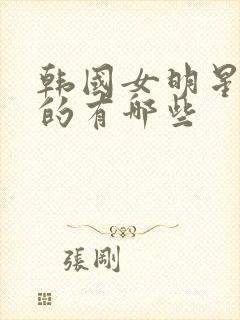 韩國女明星
的有哪些
張剛